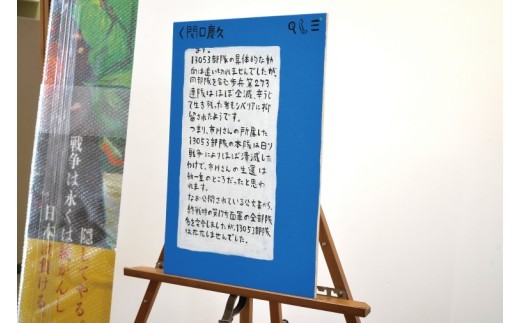 く関口慶久
ます。
13053部隊の具体的な動
向は追い切れませんでしたが、
同部隊を含む歩兵第273
連隊はほぼ全滅、辛うじ
て生き残った者もシベリアに抑
留されたようです。
つまり、市川さんの所属した
13053部隊の本隊は日ソ
戦争によりほぼ潰滅した
わけで、市川さんの生還は
紙一重のところだったと思わ
れます。
なお公開されている公文書から、
終戦時の第17方面軍の全部隊
名を確認しましたが、13053部隊
は
ませんでした。
戦争は永くは続かんし
隠してやる。
日本は負ける